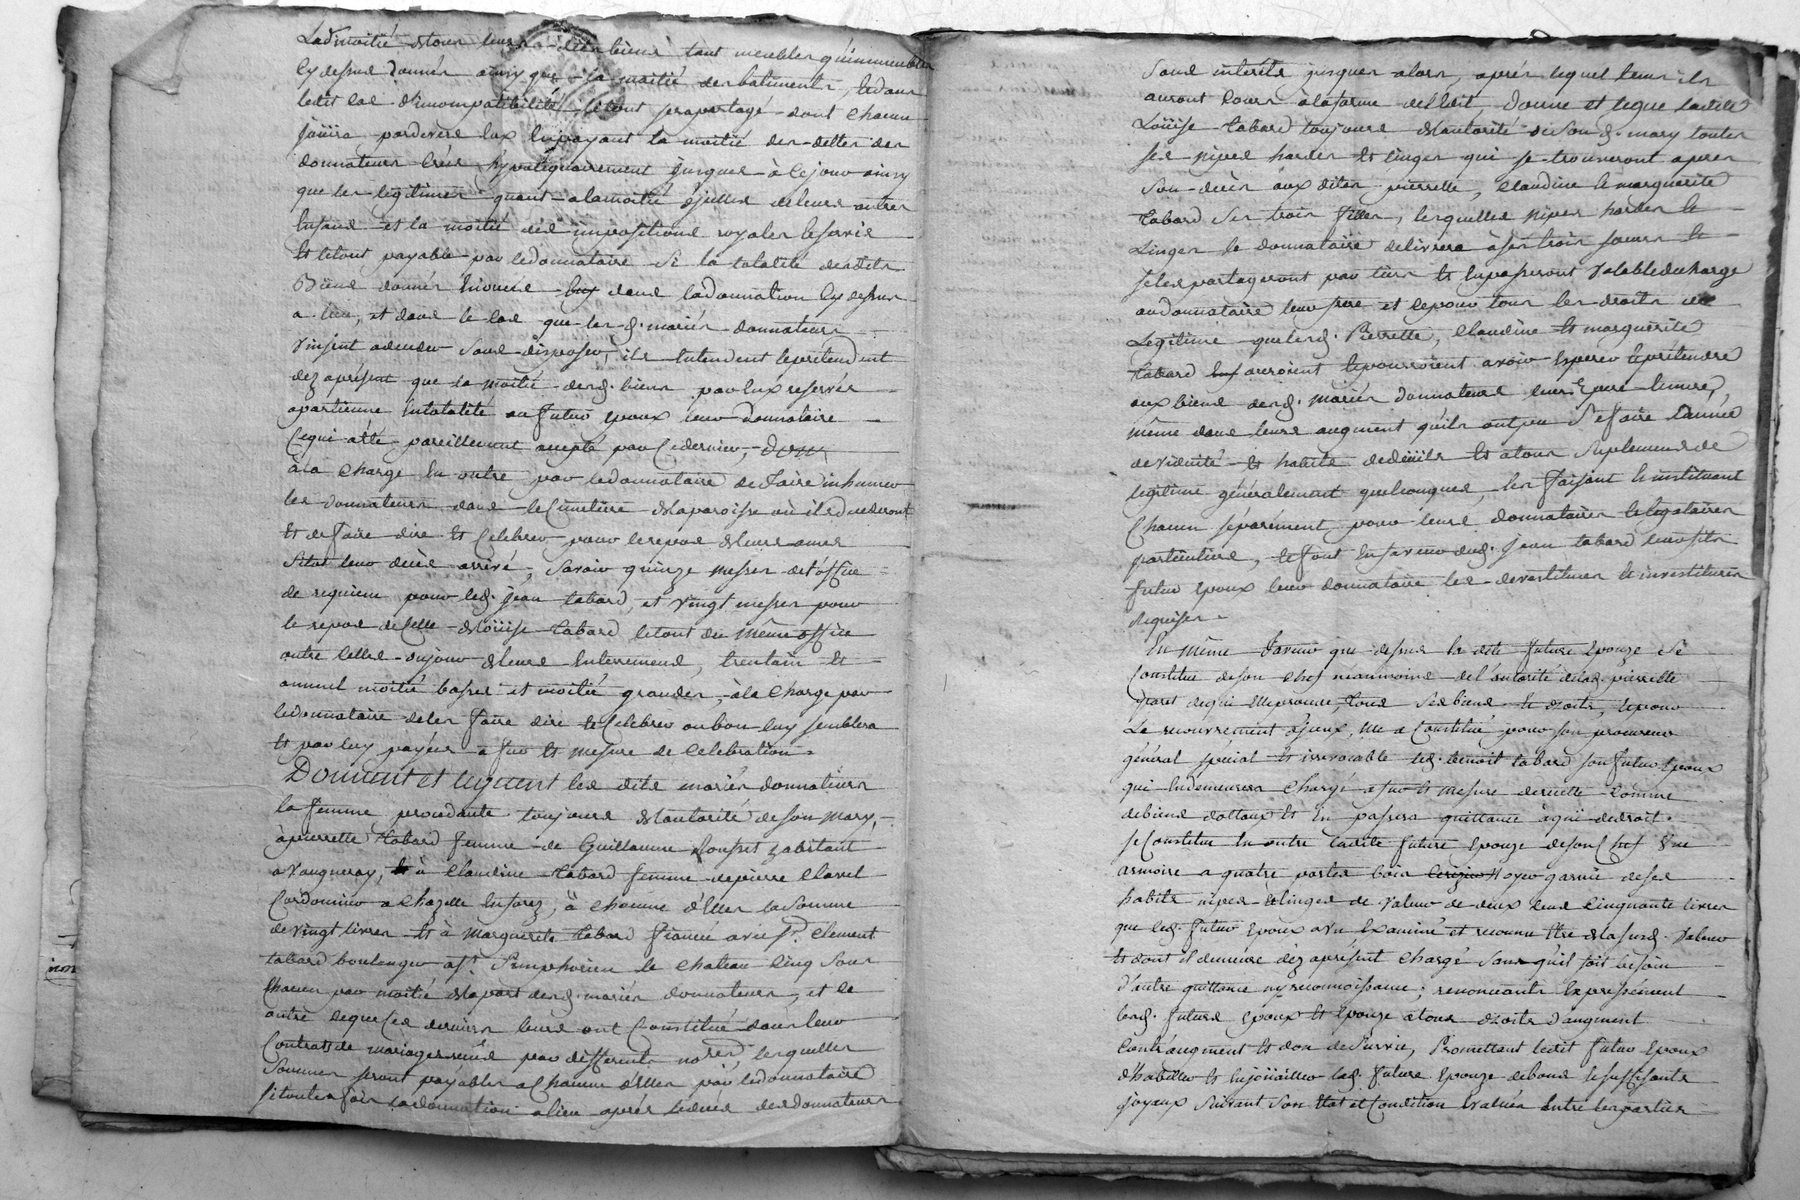 Ladt moitié de tous leurs dits biens tant meubles qu'immeubles
Cy dessus donnés ainsy que la moitié des bâtiments, et dans
ledit cas d'incompatibilité le tout sera partagé dont chacun
joüira pardevers lux En payant la moitié des dettes des
donnateurs Créés hypotéquairement jusques à Ce jour ainsy
que les legitimes quant à la moitié d'jcelles de leurs autres
Enfans et la moitié des impositions royales Et servis
Et le tout payable par le donnataire Si la totalité desdits
Biens donnés Enoncés dans la donnation Cy dessus
a lieu, et dans le Cas que les d. mariés donnateurs
Vinsent adeceder Sans disposer, ils Entendent Et prétendent
dez aprésent que la moitié des d. biens par Eux reservés
apartienne En totalité au futur Epoux leur donnataire
Ce qui a été pareillement accepté par Ce dernier,
à la Charge En outre par le donnataire de faire inhumer
les donnateurs dans le Cimetière de la paroisse où ils decederont
Et de faire dire Et Celebrer pour le repos de leurs ames
Sitot leur décès arrivé, Savoir quinze messes de l'office
de requiem pour led. jean tabard, et Vingt messes pour
le repos de Celle de Loüise Tabard le tout du même office
outre Celles du jour de leurs Enterrements, trentain Et
annuel moitié basses et moitié grandes, à la Charge par
le donnataire de les faire dire Et Celebrer ou bon luy semblera
Et par luy payées a fur Et mesure de Celebration.
Donnent et leguent les dits mariés donnateurs
la femme procedante toujours de l'autorité de son mary,
à pierrette Tabard femme de Guillaume Rousset habitant
a Vaugneray, à Claudine Tabard femme de pierre Clavel
Cordonnier a Chazelle En forez, à Chacune d'Elles la Somme
de Vingt livres Et à marguerite Tabard fiancée avec Sr. Clement
tabard boulanger a St. Simphorien le Chateau Cinq Sous
Chacun par moitié de la part des d. mariés donnateurs, et Ce
outre Ce que Ces derniers leurs ont Constitué dans leur
Contrats de mariages reçus par differents nores. lesquelles
Sommes seront payables a Chacune d'Elles par le donnataire
si toutes fois la donnation a lieu après le décès des donnateurs
Sans intérêts jusques alors, après lequel tems ils
auront Cours à la forme de l'Edit, donne et legue ladite
Loüise Tabard toujours de l'autorité de Son d. mary toutes
ses nipes hardes Et linges qui se trouveront apres
Son décès aux dites pierrette, Claudine Et marguerite
Tabard Ses trois filles, lesquelles nipes hardes Et
Linges le donnataire delivrera à ses trois soeurs Et
se les partageront par tiers Et En passeront Valable decharge
au donnataire leur frere et Ce pour tous les droits de
Légitime que les d. Pierrette, Claudine Et marguerite
Tabard auroient Et pourroient avoir Esperer Et prétendre
aux biens des d. mariés donnateurs leurs Pere Et mere,
même dans leurs augment qu'ils ont pu S'etre faire l'année
de viduité Et habits de deüils Et a tous Suplements de
legitime généralement quelconques, les faisant Et instituant
Chacun séparément pour leurs donnataires Et legataires
particuliers, Et font En faveur dud. Jean tabard leur fils
futur Epoux leur donnataire les devestitures Et investitures
Requises.
En même faveur que dessus la dite future Epouze Se
Constitue de son Chef néanmoins de l'autorité de lad. pierrette
de qui Elle procede, tous Ses biens Et droits, Et pour
Le recouvrement d'jceux, Elle a Constitué pour son procureur
général spécial Et irrevocable led. benoit tabard son futur Epoux
qui En demeurera Chargé a fur Et mesure de recette Comme
de biens dottaux Et En passera quittance à qui de droit.
Se Constitue En outre Ladite future Epouze de son Chef Une
armoire a quatre portes bois noyer garnie de ses
habits nipes Et linges de Valeur de deux Cens Cinquante livres
que led. futur Epoux a vu Examiné et reconnu Etre de la susd. Valeur
Et dont il demeure dèz aprésent Chargé Sans qu'il soit besoin
d'autre quittance ny reconnoissance; renonceants Expressément
lesd. futurs Epoux Et Epouze a tous droits d'augment
Contr'augment Et don de Survie, Promettant ledit futur Epoux
d'habiller Et Enjoüailler lad. future Epouze de bons Et suffisants
joyaux Suivant Son Etat et Condition Evalués Entre les parties